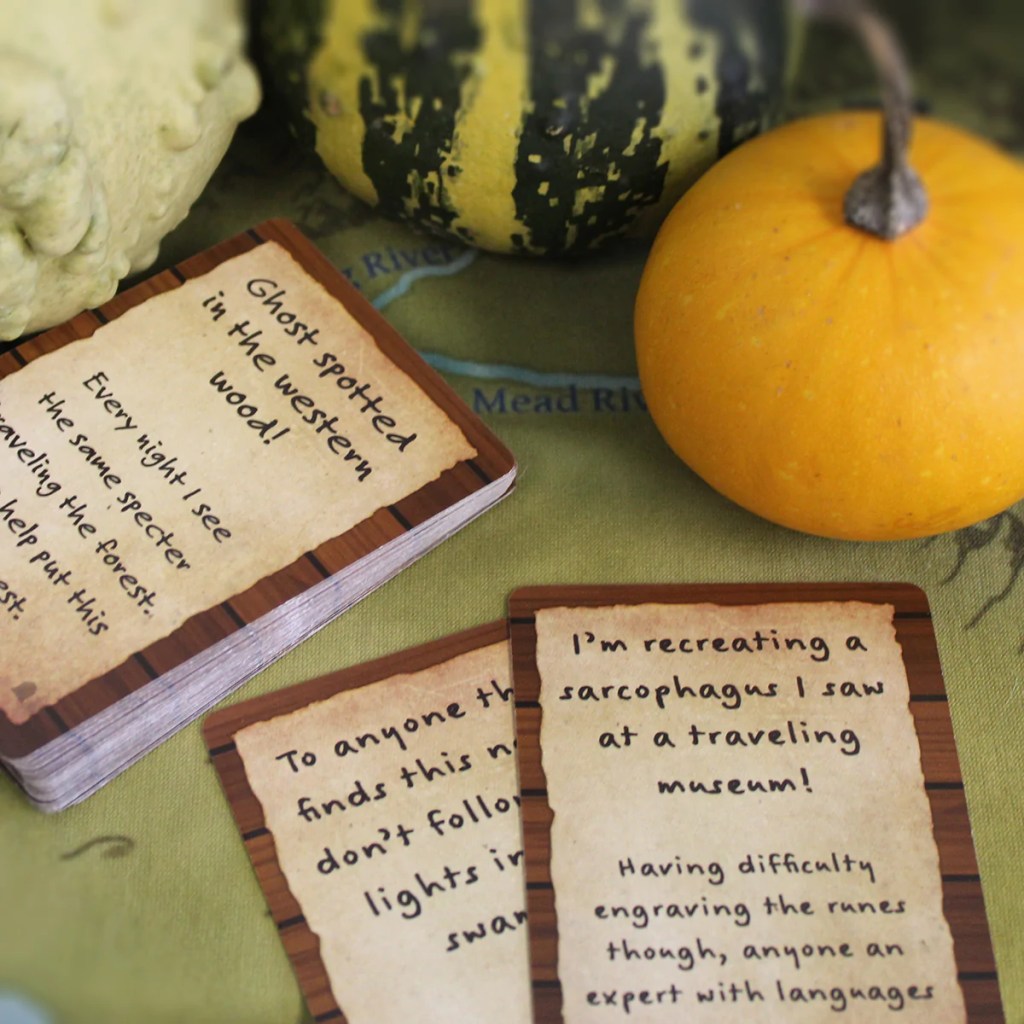 River
Mead
Ghost spotted
in the western
wood!
Every night I see
the same specter
traveling the forest.
help put this
To anyone
finds this
don't
lights
I'm recreating a
sarcophagus I saw
at a traveling
museum!
Having difficulty
engraving the runes
though, anyone an
expert with languages